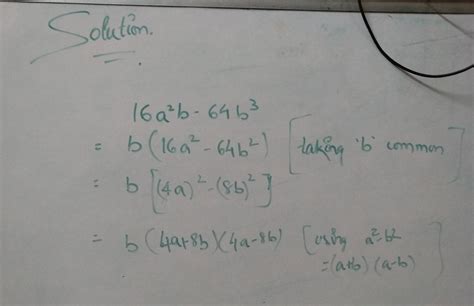 Solution.
16a²b - 64b³
= b(16a² - 64b²) [taking 'b' common]
= b[(4a)² - (8b)²]
= b(4a+8b)(4a-8b) [using a²-b²
=(a+b)(a-b)]